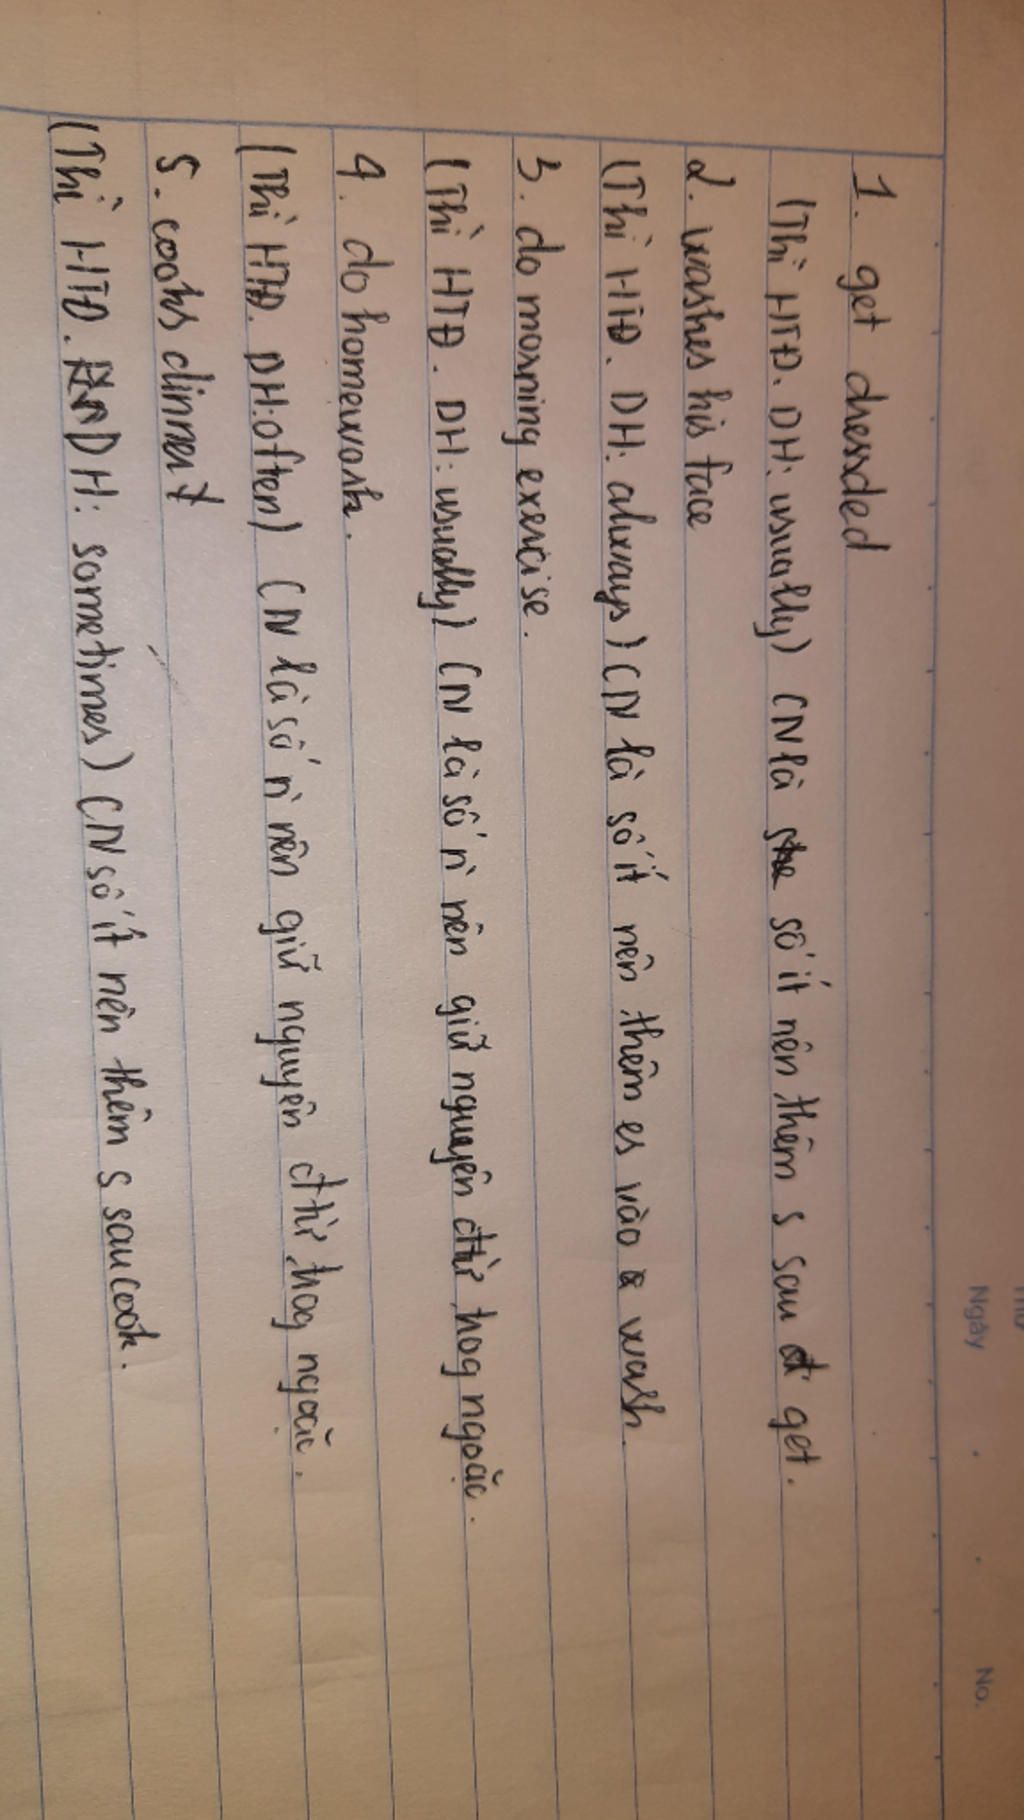 Ngày
No.
1. get dressded
(Thì HTĐ. DH: usually) CN là số ít nên thêm s sau get.
2. washes his face
(Thì HTĐ. DH: always) CN là số ít nên thêm es vào wash.
3. do morning exercise.
(Thì HTĐ. DH: usually) CN là số n` nên giữ nguyên đtừ trog ngoặc.
4. do homework.
(Thì HTĐ. DH: often) CN là số n` nên giữ nguyên đtừ trog ngoặc.
5. cooks dinner
(Thì HTĐ. DH: sometimes) CN số ít nên thêm s sau cook.